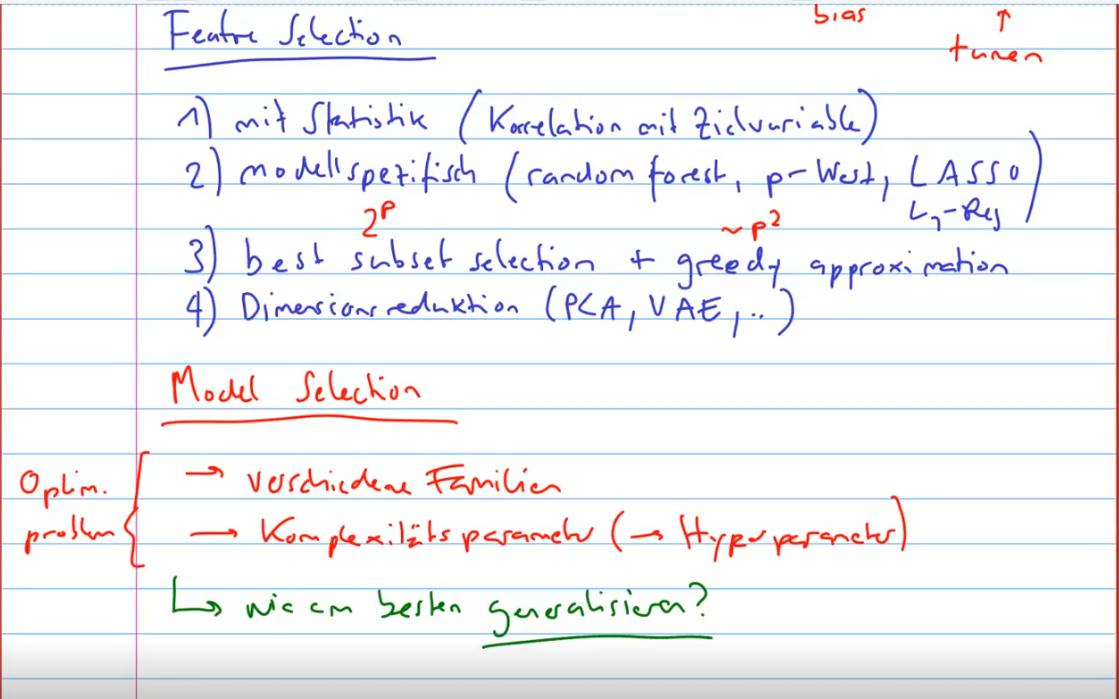 bias ↑
Feature Selection tunen
1) mit Statistik (Korrelation mit Zielvariable)
2) modellspezifisch (random forest, p-Wert, LASSO)
L₁-Reg
2^p ~p²
3) best subset selection + greedy approximation
4) Dimensionsreduktion (PCA, VAE, ..)
Model Selection
Optim. → verschiedene Familien
problem → Komplexitätsparameter (→ Hyperparameter)
↳ wie am besten generalisieren?